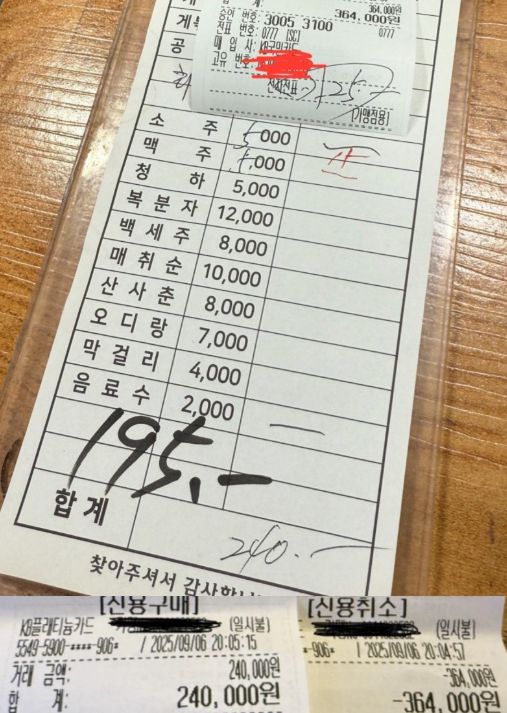 364,000원
합 계: 364,000원
승인 번호: 3005 3100
전표 번호: 0777 [SC] 0777
매 입 사: KB국민카드
고유 번호:
전자전표
[가맹점용]
게
공
소 주 5,000
맥 주 5,000
청 하 5,000
복 분 자 12,000
백 세 주 8,000
매 취 순 10,000
산 사 춘 8,000
오 디 랑 7,000
막 걸 리 4,000
음 료 수 2,000 —
195.-
합 계
240.-
찾아주셔서 감사합니
[신용구매]
KB플래티늄카드 (일시불)
5549-5900-****-906* / 2025/09/06 20:05:15
거래 금액: 240,000원
합 계: 240,000원
[신용취소]
(일시불)
-906* / 2025/09/06 20:04:57
-364,000원
-364,000원